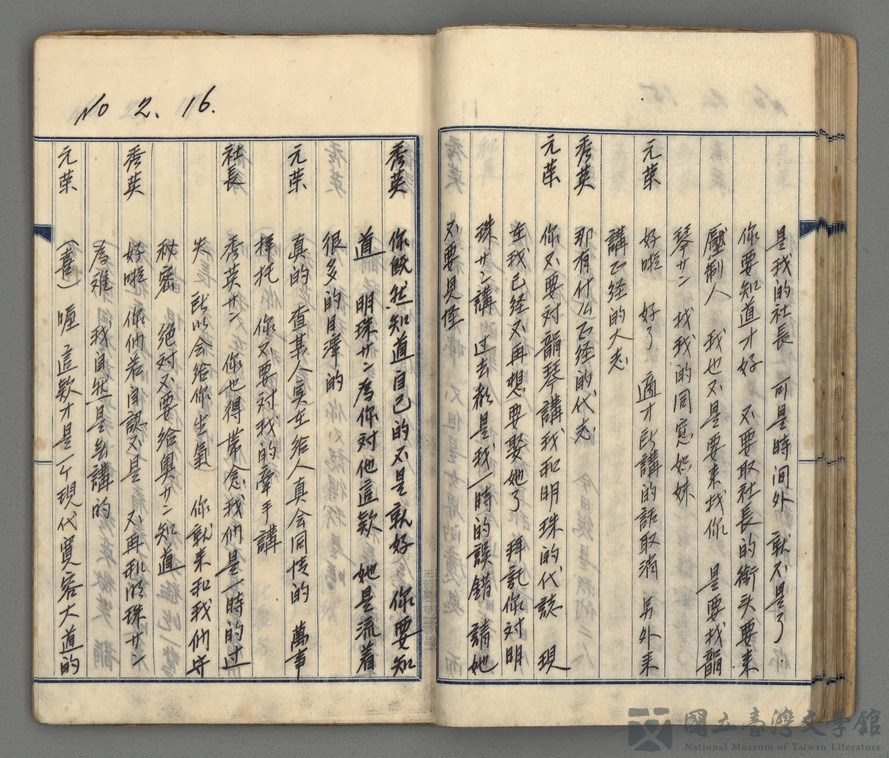 是我的社長　可是時間外　就不是了
你要知道才好　不要取社長的銜头要来
壓制人　我也不是要来找你　是要找韻
琴サン　找我的同窓姉妹
元荣　好啦　好了　適才所講的話取消　另外来
講正经的大志
秀英　那有什么正经的代志
元荣　你不要对韻琴講我和明珠的代誌　現
在我已经不再想要娶她了　拜託你对明
珠サン講　过去都是我一時的誤錯　請她
不要見怪
No 2. 16.
秀英　你既然知道自己的不是就好　你要知
道　明珠サン為你对他這款　她是流着
很多的目滓的
元荣　真的　查某人実在给人真会同情的　萬事
拜托　你不要对我的牽手講
社長　秀英サン　你也得帯念我们是一時的过
失　所以会给你生氣　你就来和我们守
秘密　絶对不要给奥サン知道
秀英　好啦　你们若自認不是　不再和明珠サン
為难　我自然是無講的
元荣　（喜）喔　這款才是一个現代寛容大道的
國立臺灣文學館
National Museum of Taiwan Literature